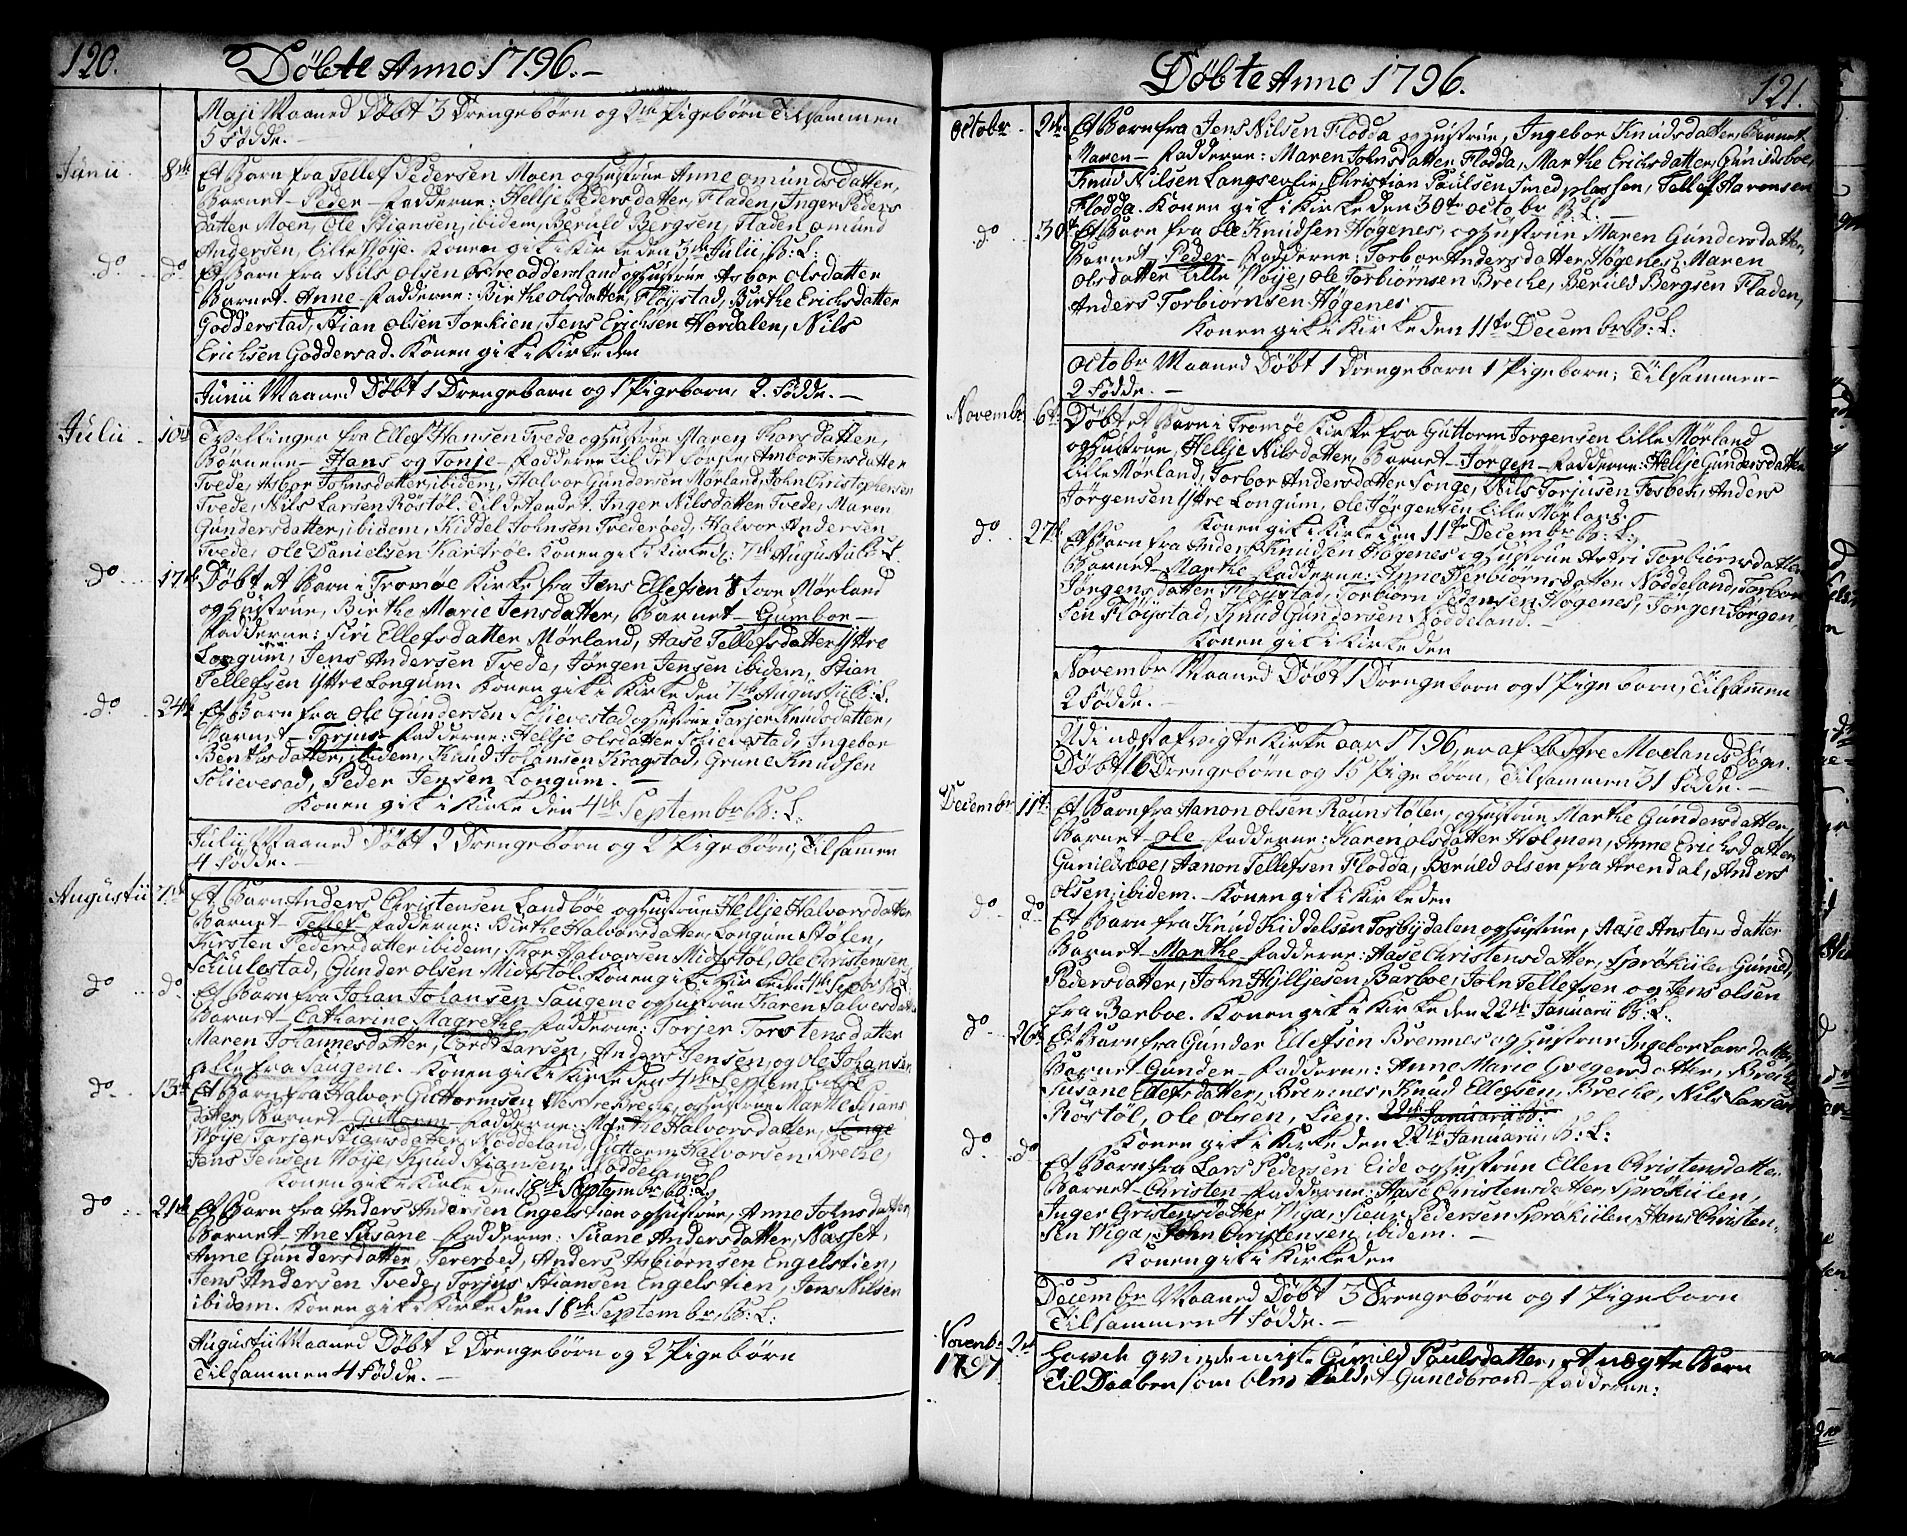 120.
Döbte Anno 1796.–
Maji Maaned Döbt 3 Drengebörn og 2de Pigebörn Tilsammen
5 Födde.–
Junii. 8de Et Barn fra Tellef Pedersen Moen og hustrue Anne Omundsdatter,
Barnet – Peder – Fadderne: Hellje Pedersdatter, Fladen, Inger Peders
datter Moen, Ole Stiansen, ibidem, Beruld Bergsen, Fladen Omund
Andersen, Lille Wöije. Konen gik i Kirke den 3de Julii, B: L:
do do Et Barn fra Nils Olsen oddersland og hustrue Asbor Olsdatter
Barnet – Anne – Fadderne: Birthe Olsdatter, Flöystad, Birthe Erichsdatter
Godderstad, Stian Olsen Torkien, Jens Erichsen Hordalen, Nils
Erichsen Goddersad. Konen gik i Kirke den
Junii Maaned Döbt 1 Drengebarn og 1 Pigebarn, 2. Födde. –
Julii – 10de Tvillinger fra Ellef Hansen Tvede og hustrue Maren Larsdatter,
Börnene – Hans og Tonje – Fadderne til det förste, Ambor Jensdatter
Tvede, Asbor Johnsdatter, ibidem, Halvor Gundersen Mörland, John Christophersen
Tvede, Nils Larsen Rostöl. Til det andet. Inger Nilsdatter Tvede, Maren
Gundersdatter, ibidem, Kiddel Johnsen Tvederöed, Halvor Andersen
Tvede, Ole Danielsen Kartröe. Konen gik i Kirke d: 7de Augustii B: L:
do 17de Döbt et Barn i Tromöe Kirke fra Jens Ellefsen Store Mörland
og hustrue, Birthe Marie Jensdatter, Barnet – Gumbor –
Fadderne: Siri Ellefsdatter Mörland, Aase Tellefsdatter Yttre
Longum, Jens Andersen Tvede, Jörgen Jensen ibidem, Stian
Tellefsen Yttre Longum. Konen gik i Kirke den 7de Augustii B: L.
do 24de Et Barn fra Ole Gundersen Schievestad og hustrue Tarjer Knudsdatter,
Barnet – Torjus – Fadderne: Hellje Olsdatter Schievestad, Ingebor
Benthsdatter, ibidem, Knud Johansen Kragstad, Grune Knudsen
Schievesad, Peder Jensen Longum. –
Konen gik i Kirke den 4de Septembr B: L:
Julii Maaned Döbt 2 Drengebörn og 2 Pigebörn; Tilsamen
4 Födde. –
Augustii 7de Et Barn Anders Christensen Landböe og hustrue Hellje Halvorsdatter
Barnet – Tellef – Fadderne: Birthe Halvorsdatter, Longum Stölen,
Kirsten Pedersdatter ibidem, Thor Halvorsen Midtstöl, Ole Christensen
Schiulestad, Gunder Olsen Midtstöl. Konen gik i Kirke den 4de Septbr B: L:
do do Et Barn fra Johan Johansen Saugene og hustrue Karen Salvesdatter
Barnet – Catharine Magrethe – Fadderne: Torjer Torstensdatter
Maren Johannesdatter, Cordt Larsen, Anders Jensen, og Ole Johansen
alle fra Saugene. Konen gik i Kirke den 4de Septembr B: L:
do 13de Et Barn fra Halvor Guttormsen Vestre Breche, og hustrue Marthe Stians
datter, Barnet – Guttorm – Fadderne: Marthe Halvorsdatter, Songe
Wöije Tarjer Stiansdatter, Nöddeland, Guttorm Halvorsen Breche,
Jens Jensen Wöije, Knud Stiansen, Nöddeland
Konen gik i Kirke den 18de Septembr, B: L:
do 21de Et Barn fra Anders Andersen Engelstien og hustrue, Anne Johnsdatter,
Barnet – Ane Susane – Fadderne: Suane Andersdatter, Næsset,
Anne Gundersdatter, Tereröed, Anders Asbiörnsen Engelstien,
Jens Andersen Tvede, Torjus Stiansen Engelstien, Jens Nilsen
ibidem. Konen gik i Kirke den 18de Septembr, B: L:
Augustii Maaned Döbt 2 Drengebörn og 2 Pigebörn
Tilsammen 4 Födde. –
Döbte Anno 1796.
121.
October. 2de Et Barn fra Jens Nilsen Flodda og hustrue, Ingebor Knudsdatter, Barnet
Maren – Fadderne: Maren Johnsdatter Flodda, Marthe Erichsdatter, Gunildsboe,
Knud Nilsen Langsevlie, Christian Paulsen Smedplassen, Tellef Aarensen
Flodda. Konen gik i Kirke den 30te Octobr B: L: –
do 30te Et Barn fra Ole Knudsen Högenes, og hustrue Maren Gundersdatter,
Barnet – Peder – Fadderne: Torbor Andersdatter, Högenes, Maren
Olsdatter Lille Wöije, Ole Torbiörnsen Breche, Beruld Bergsen Fladen,
Anders Torbiörnsen Högenes –
Konen gik i Kirke den 11te Decembr B: L:
Octobr Maaned Döbt 1 Drengebarn 1 Pigebarn; Tilsammen –
2 Födde. –
Novembr 6te Döbt et Barn i Tromöe Kirke fra Guttorm Jorgensen Lille Mörland
og hustrue, Hellje Nilsdatter, Barnet – Jorgen – Fadderne: Hellje Gundersdatter
Lille Mörland, Torbor Andersdatter Songe, Nils Torjusen Fosbek, Anders
Jörgensen Yttre Longum, Ole Jörgensen Lille Mörland.
Konen gik i Kirke den 11te Decembr B: L:
do 27de Et Barn fra Anders Knudsen Högenes og hustrue Astri Torbiörnsdatter
Barnet – Marthe – Fadderne: Anne Torbiörnsdatter Nöddeland, Torbor
Jörgensdatter Flöystad, Torbiörn Pedersen Högenes, Jörgen Jörgen
sen Flöystad, Knud Gundersen Nöddeland. –
Konen gik i Kirke den
Novembr Maaned Döbt 1 Drengebarn og 1 Pigebarn, Tilsamen
2 Födde. –
Udi næst afvigte Kirke aar 1796, er af Östre Moelands Sogn
Döbt 16 Drengebörn og 15 Pigebörn, Tilsammen 31 Födde. –
Decembr 11te Et Barn fra Aanon Olsen Raunstölen, og hustrue Marthe Gundersdatter,
Barnet – Ole – Fadderne: Karen Olsdatter Holmen, Anne Erichsdatter,
Gunildsboe, Aanon Tellefsen Flodda, Beruld Olsen fra Arendal, Anders
Olsen, ibidem. – Konen gik i Kirke den
do do Et Barn fra Knud Kiddelsen Torsbydalen og hustrue, Aase Anstensdatter
Barnet – Marthe – Fadderne: Aase Christensdatter, Spröküle, Guroe
Pedersdatter, John Hylljesen Barboe, John Tellefsen og Jens Olsen
fra Barboe. Konen gik i Kirke den 22de Januarii B: L:
do 26de Et Barn fra Gunder Ellefsen Brennes og hustrue Ingebor Larsdatter,
Barnet – Gunder – Fadderne: Anne Marie Gregersdatter, Breche
Susane Ellefsdatter, Brennes, Knud Ellefsen, Breche, Nils Larsen
Rostöl, Ole Olsen, Lien. 22de Januarii B:
Konen gik i Kirke den 22de Januarii, B: L:
do do Et Barn fra Lars Pedersen Eide og hustrue Ellen Christensdatter
Barnet – Christen – Fadderne: Aase Christensdatter, Spröküilen,
Inger Cristensdatter Viga, Siur Pedersen Spröküilen, Hans Christen-
sen Viga, John Christensen ibidem. –
Konen gik i Kirke den
Decembr Maaned Döbt 3 Drengebörn og 1 Pigebarn
Tilsammen 4 Födde. –
Novembr 1797 2de Havde qvindemiste Gunild Paulsdatter, et uægte Barn
Til Daaben som blev kaldet – Guneldbrand – Fadderne: